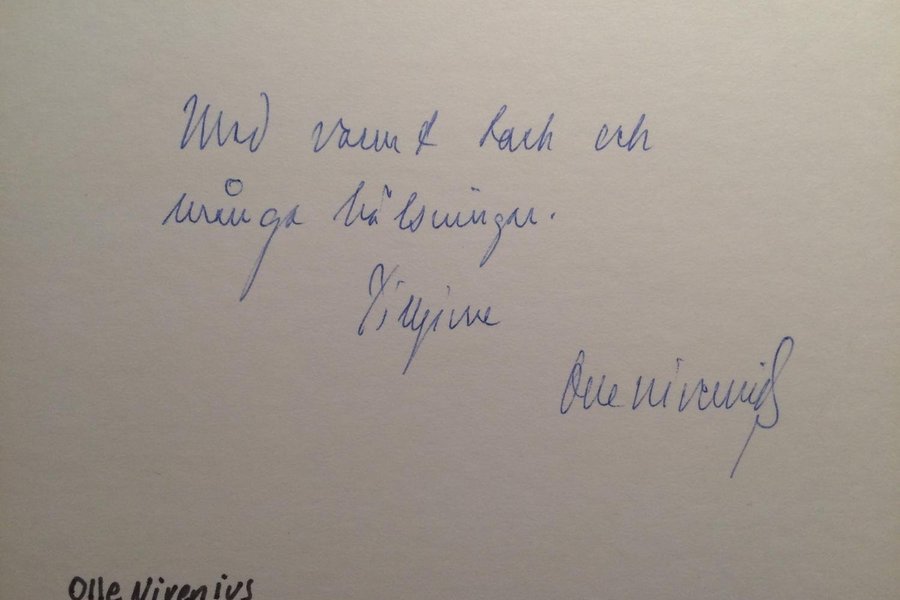 Med varmt tack och
många hälsningar.
Tillgivne
Olle Nirenius
Olle Nirenius